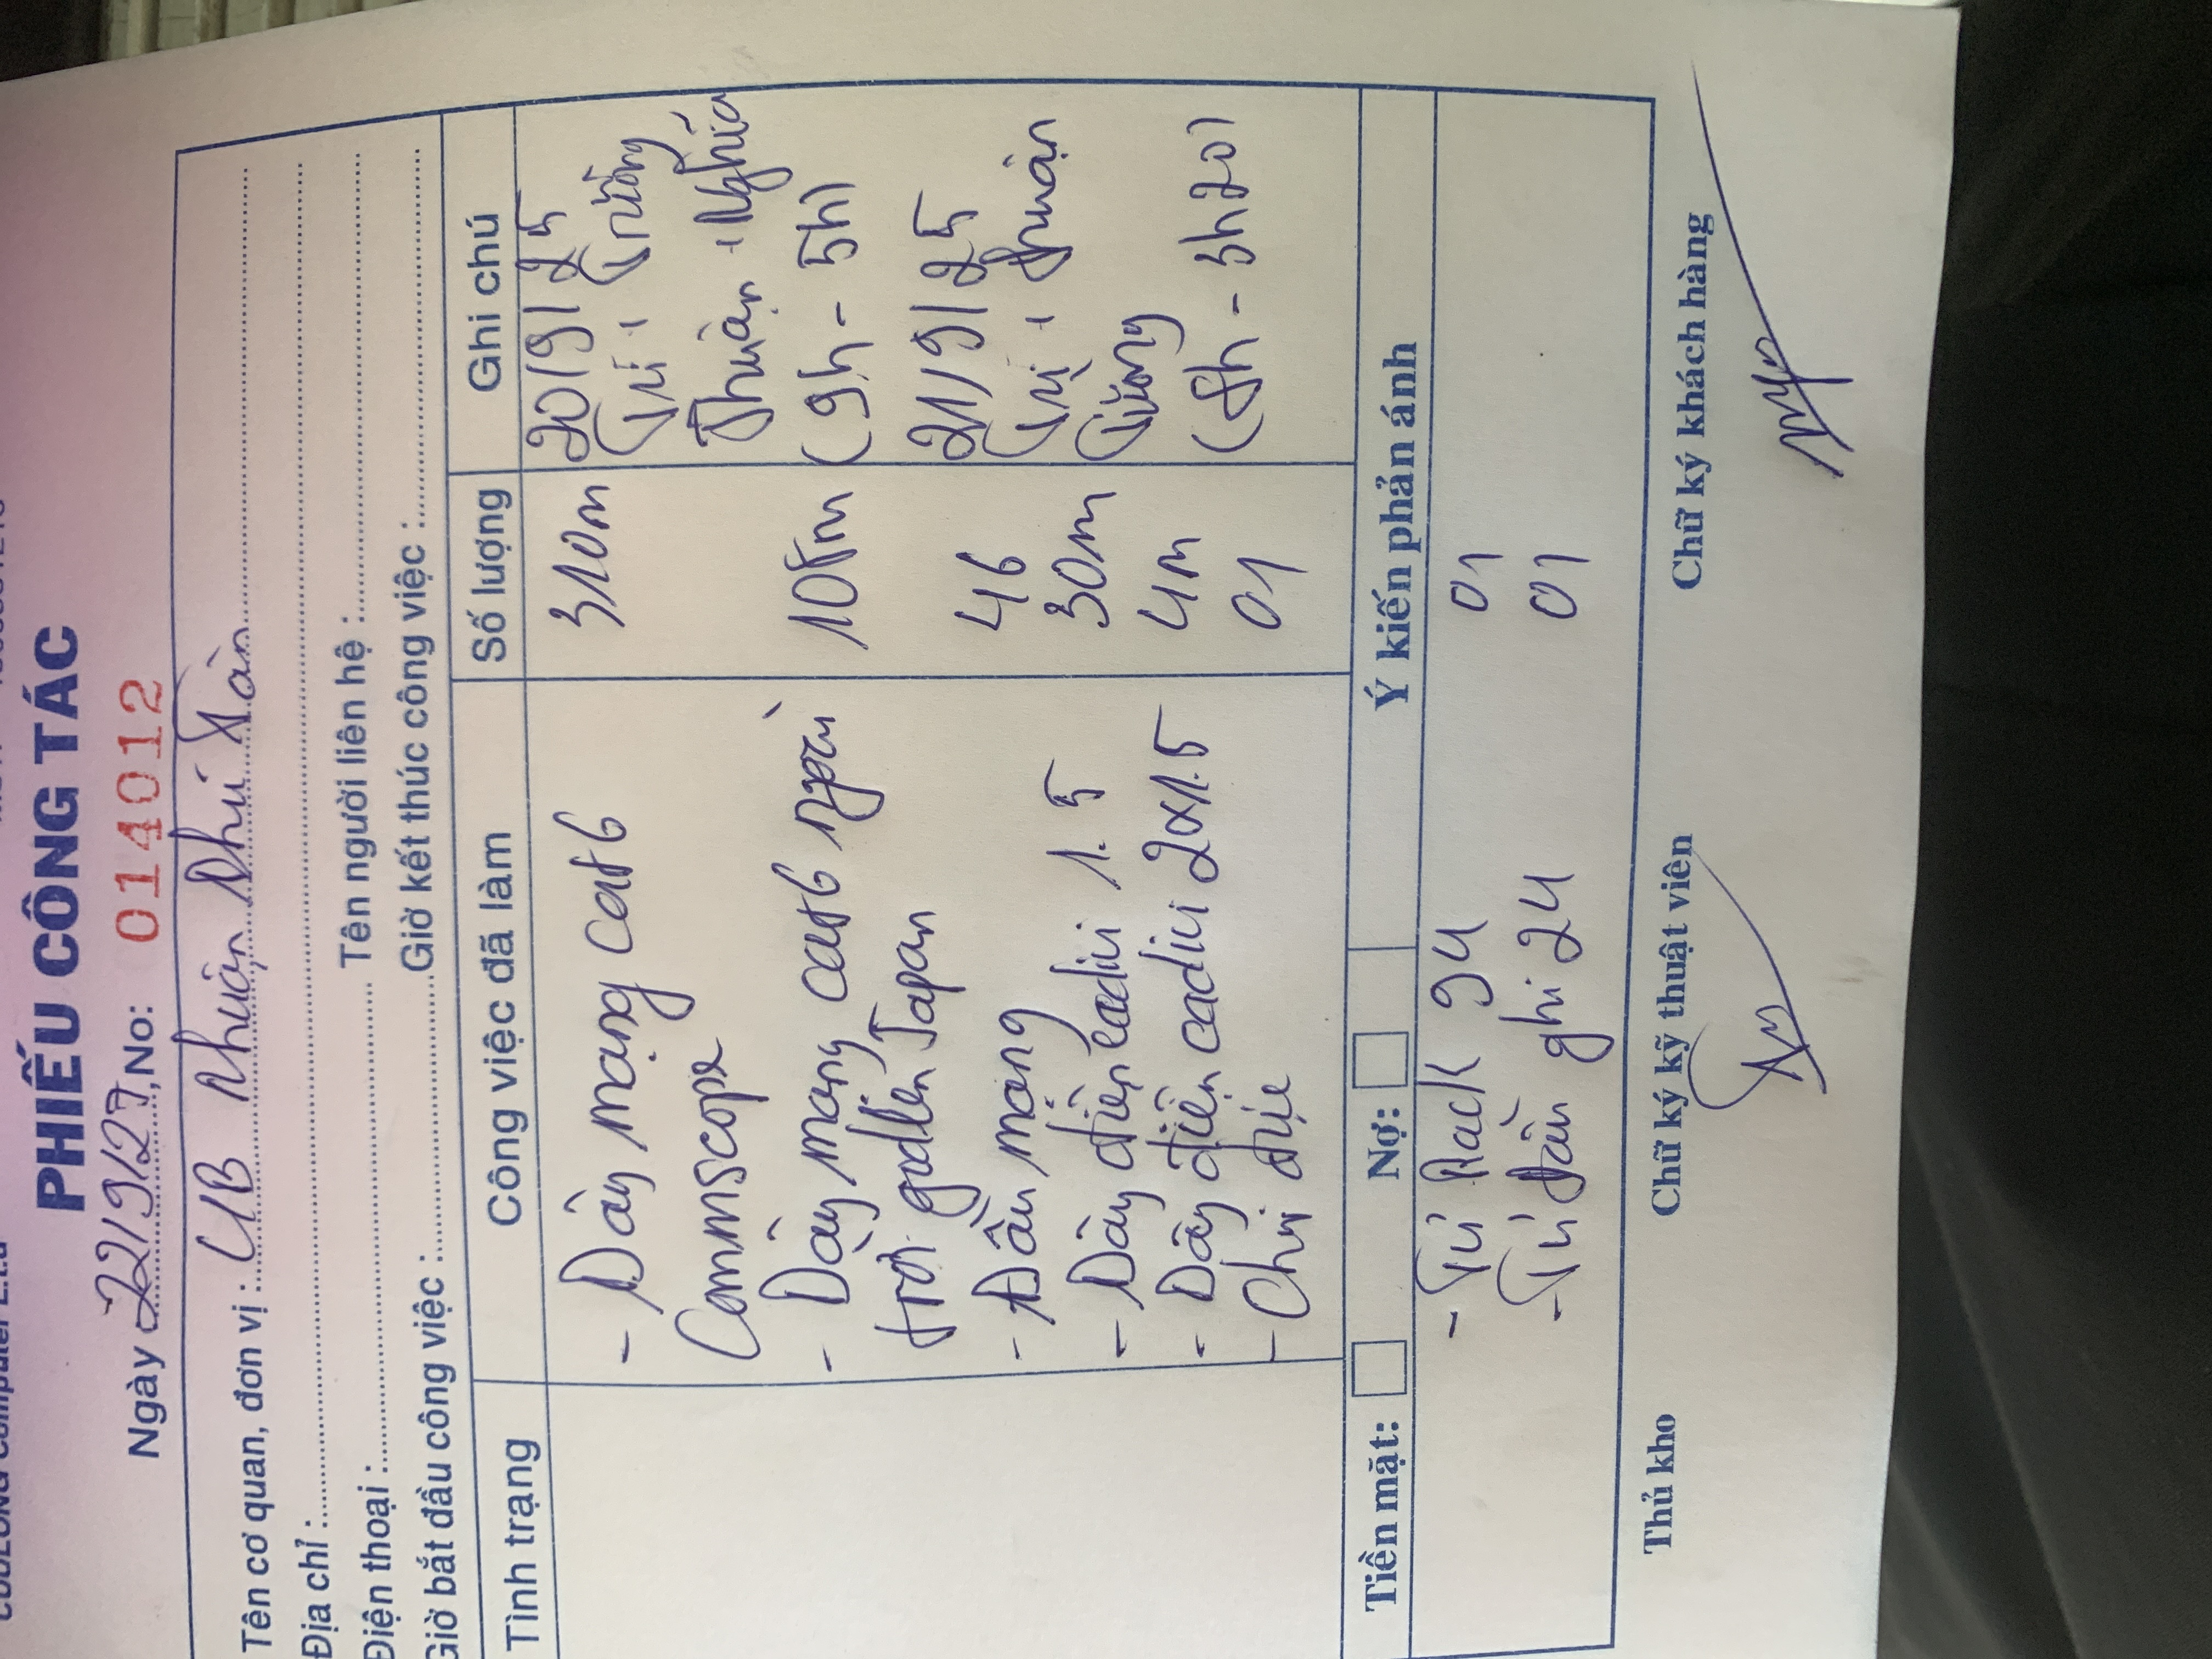 Computer Ltd
PHIẾU CÔNG TÁC
Ngày 22/9/25, No: 014012
Tên cơ quan, đơn vị : UB Nhuận Phú Tân
Địa chỉ :
Điện thoại : Tên người liên hệ :
Giờ bắt đầu công việc : Giờ kết thúc công việc :
Tình trạng Công việc đã làm Số lượng Ghi chú
- Dây mạng cat6 310m 20/9/25
Commscope Trí, Trường
Thuận, Nghĩa
- Dây mạng cat6 ngoài 105m (9h - 5h)
trời golden Japan
- Đầu mạng 46 21/9/25
- Dây điện cadivi 1.5 30m Trí, Thuận
Trường
- Dây điện cadivi 2x1.5 4m (8h - 3h20)
- Chụi điện 01
Tiền mặt: Nợ: Ý kiến phản ánh
- Tủ Rack 9U 01
- Tủ đầu ghi 2U 01
Thủ kho Chữ ký kỹ thuật viên Chữ ký khách hàng